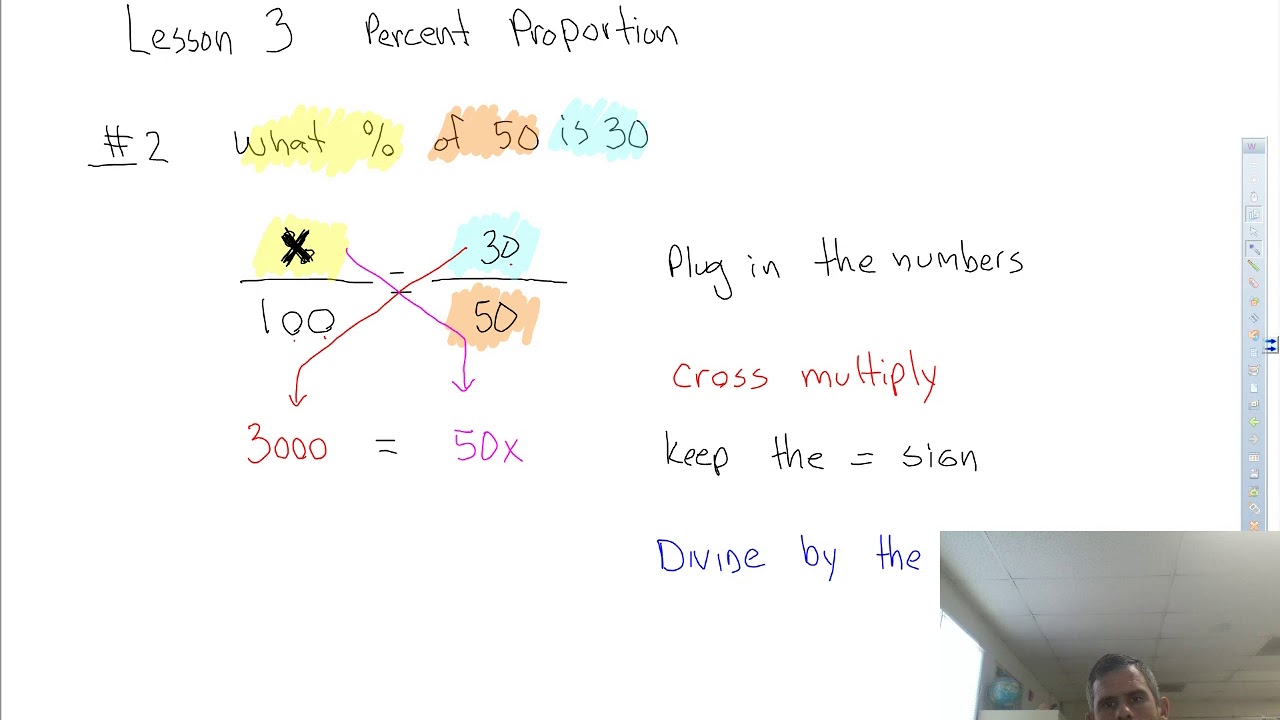 Lesson 3 Percent Proportion
#2 what % of 50 is 30
x = 30
100 50
Plug in the numbers
cross multiply
3000 = 50x
keep the = sign
Divide by the